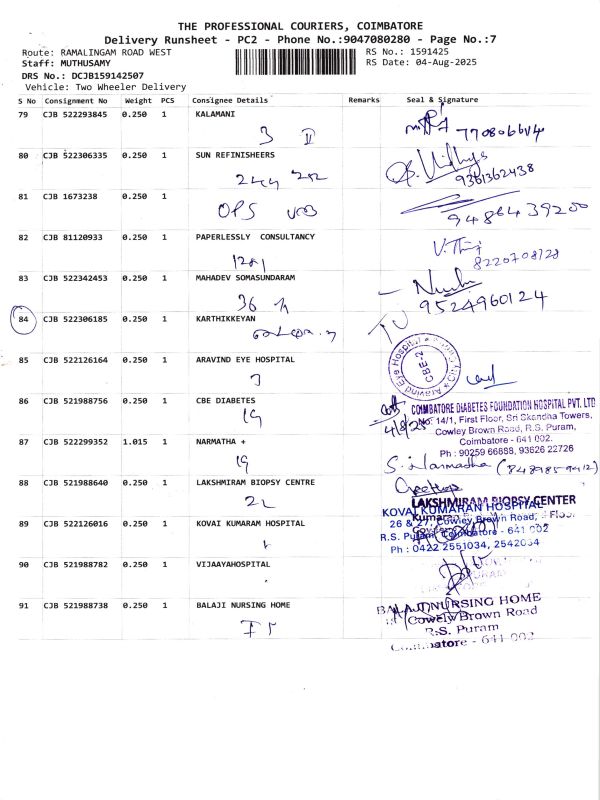 THE PROFESSIONAL COURIERS, COIMBATORE
Delivery Runsheet - PC2 - Phone No.:9047080280 - Page No.:7
Route: RAMALINGAM ROAD WEST
RS No.: 1591425
Staff: MUTHUSAMY
RS Date: 04-Aug-2025
DRS No.: DCJB159142507
Vehicle: Two Wheeler Delivery
S No Consignment No Weight PCS Consignee Details Remarks Seal & Signature
79 CJB 522293845 0.250 1 KALAMANI
3 II
80 CJB 522306335 0.250 1 SUN REFINISHEERS
9361362438
81 CJB 1673238 0.250 1
OPS
9486439200
82 CJB 81120933 0.250 1 PAPERLESSLY CONSULTANCY
8220708128
83 CJB 522342453 0.250 1 MAHADEV SOMASUNDARAM
36
9524960124
84 CJB 522306185 0.250 1 KARTHIKKEYAN
85 CJB 522126164 0.250 1 ARAVIND EYE HOSPITAL
3
Aravind Eye Hospital
CBE-2
86 CJB 521988756 0.250 1 CBE DIABETES
19
4/8/25
COIMBATORE DIABETES FOUNDATION HOSPITAL PVT. LTD
No: 14/1, First Floor, Sri Skandha Towers,
Cowley Brown Road, R.S. Puram,
Coimbatore - 641 002.
Ph : 90259 66688, 93626 22726
87 CJB 522299352 1.015 1 NARMATHA +
19
S. Narmadha
88 CJB 521988640 0.250 1 LAKSHMIRAM BIOPSY CENTRE
LAKSHMIRAM BIOPSY CENTER
89 CJB 522126016 0.250 1 KOVAI KUMARAM HOSPITAL
KOVAI KUMARAN HOSPITAL
26 & 27, Cowley Brown Road,
R.S. Puram, Coimbatore - 641 002
Ph : 0422 2551034, 2542034
90 CJB 521988782 0.250 1 VIJAAYAHOSPITAL
91 CJB 521988738 0.250 1 BALAJI NURSING HOME
BALAJI NURSING HOME
Cowely Brown Road
R.S. Puram
Coimbatore - 641 002